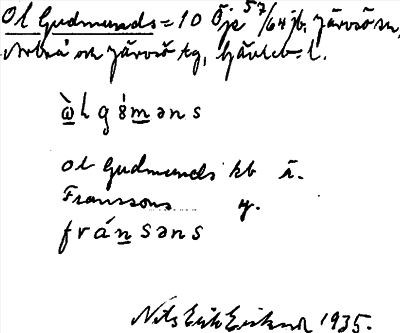 Ol Gudmunds = 10 Öje 57/64 jb. Järvsö sn,
Arbrå och Järvsö tg, Gävleb. l.
ὼl gȣ́məns
Ol Gudmunds kb ä.
Franssons y.
fránsəns
Nils Erik Eriksson 1935.